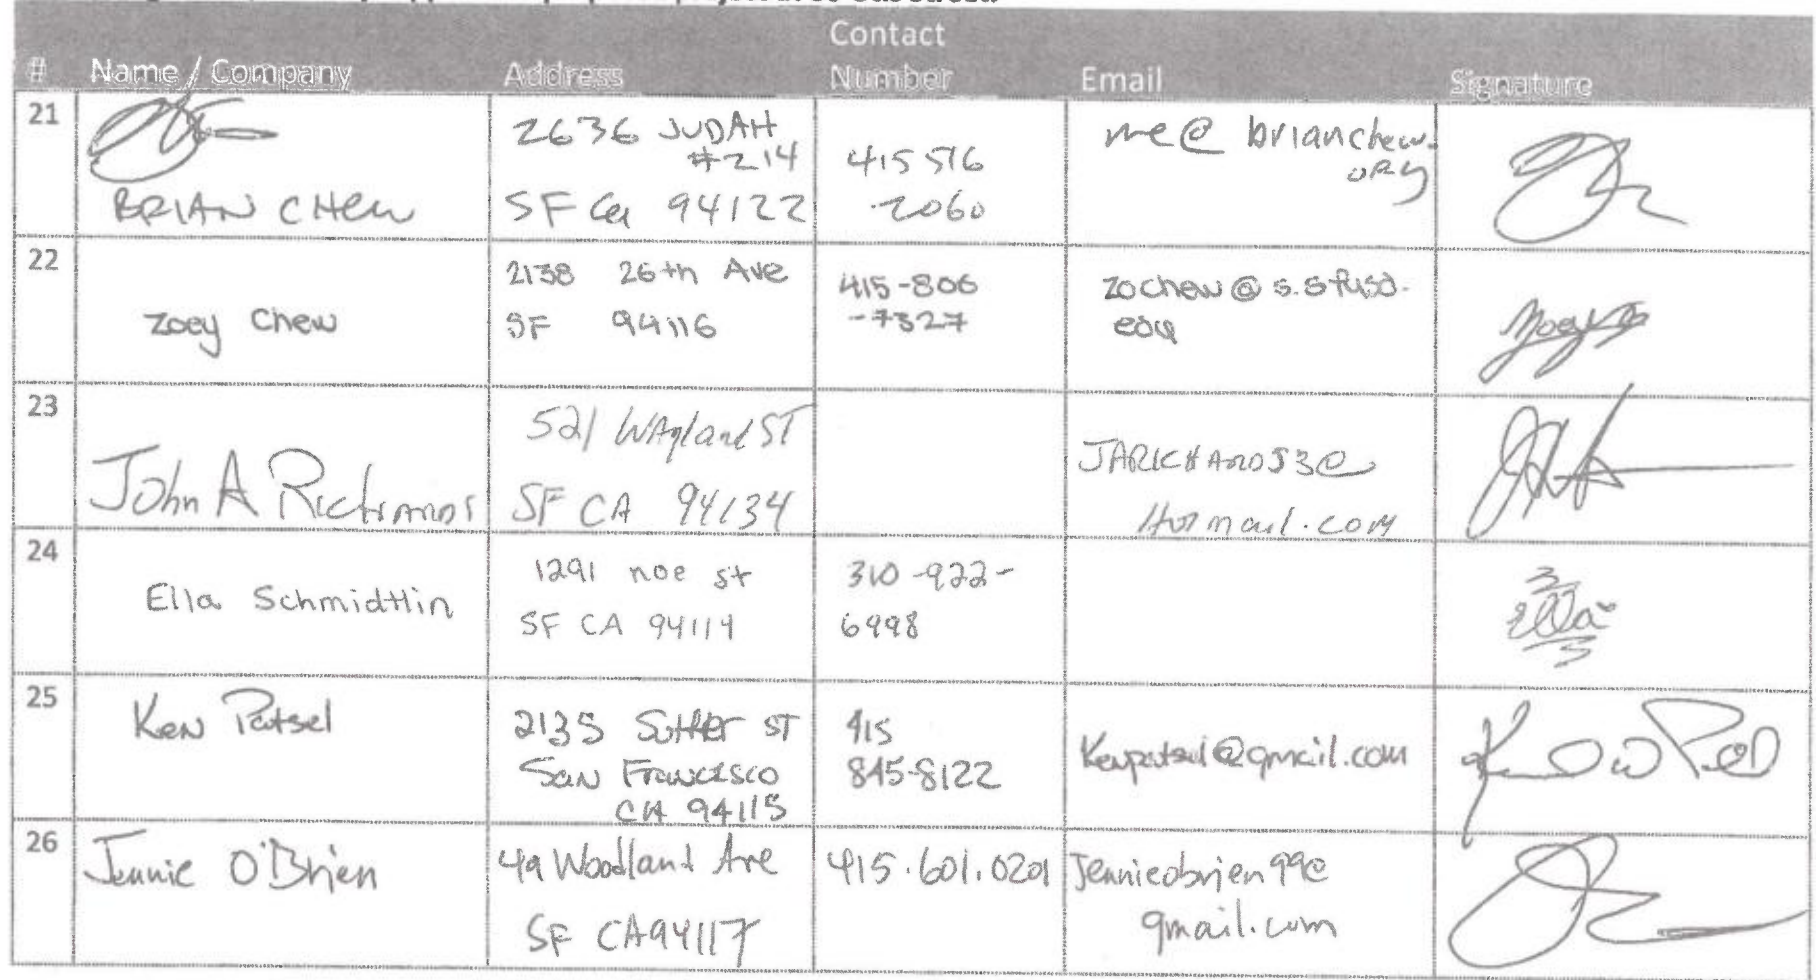 Contact
# Name / Company Address Number Email Signature
21
BRIAN CHEW
2636 JUDAH
#214
SF Ca 94122
415 516
-2060
me@ brianchew.
org
22
Zoey Chew
2138 26th Ave
SF 94116
415-806
-7327
zochew@s.sfusd.
edu
Zoey
23
John A Richards
521 Wayland ST
SF CA 94134
JARICHARDS3@
Hotmail.com
24
Ella Schmidtlin
1291 noe st
SF CA 94114
310-922-
6998
Ella
25
Ken Patsel
2135 Sutter ST
San Francisco
CA 94115
415
845-8122
Kenpatsel@gmail.com
26
Jennie O'Brien
49 Woodland Ave
SF CA 94117
415.601.0201
Jennieobrien99@
gmail.com